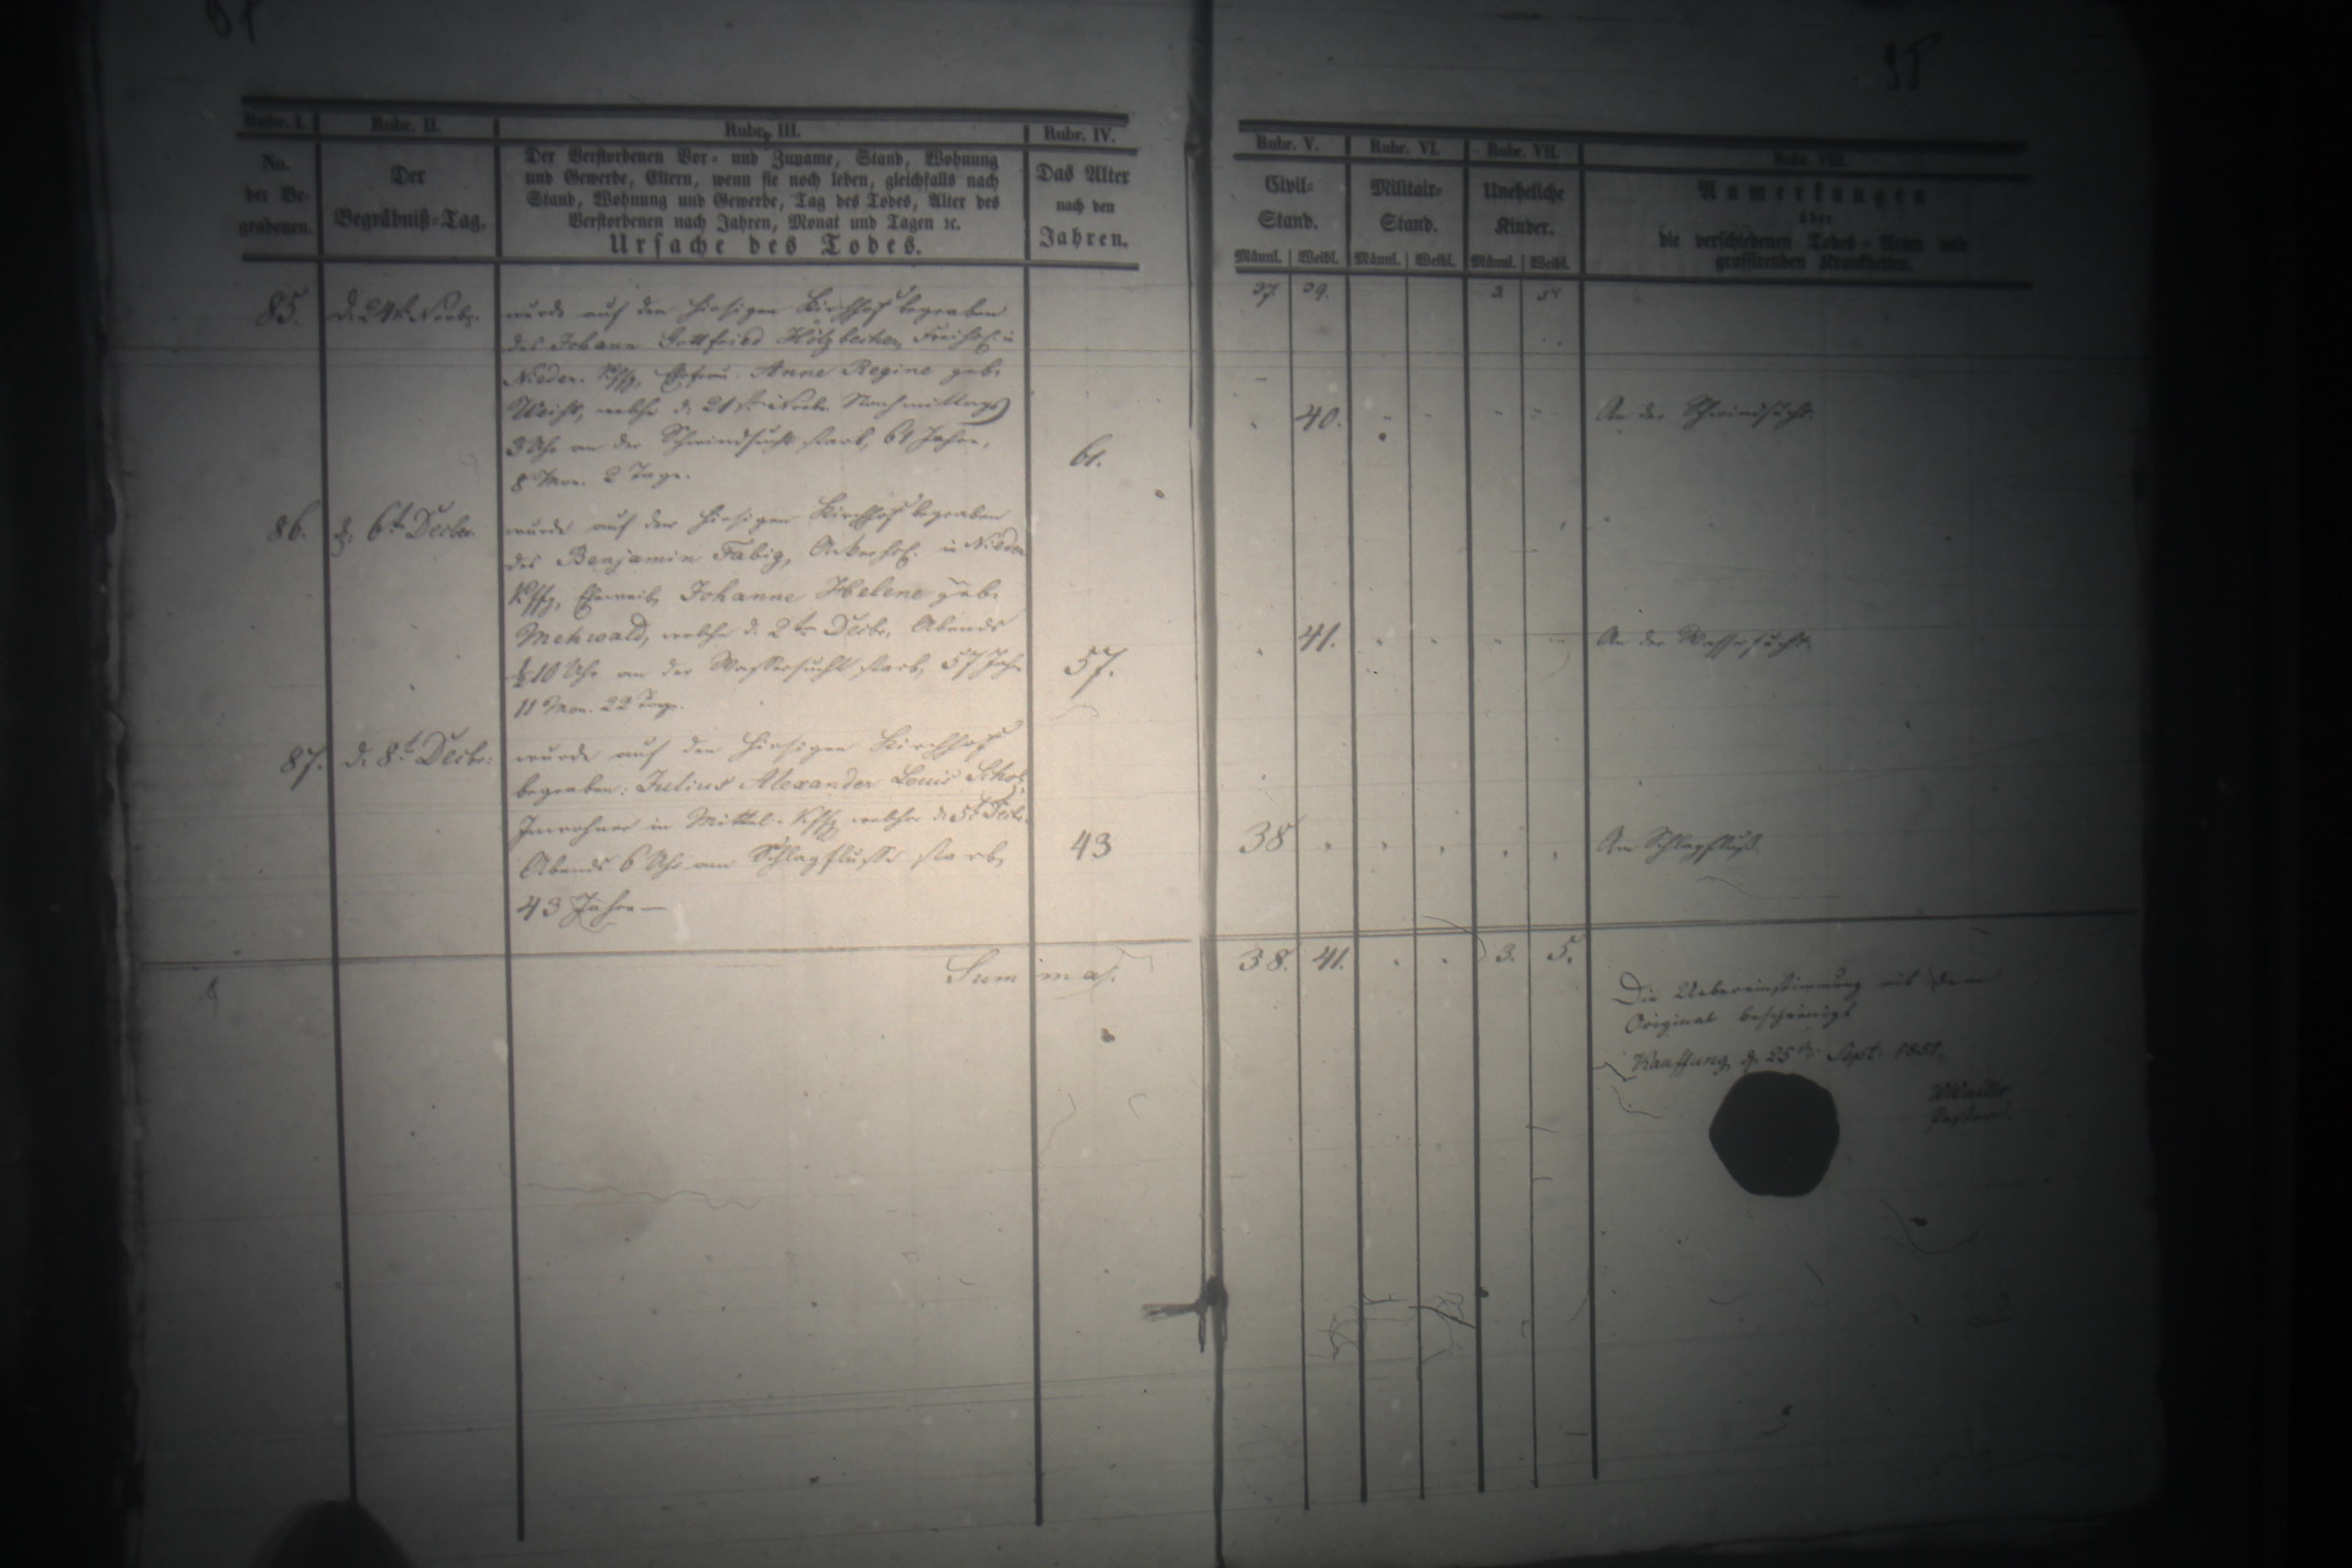 Rubr. I. Rubr. II. Rubr. III. Rubr. IV.
No. der Be- grabenen.
Der Begräbniß-Tag.
Der Verstorbenen Vor- und Zuname, Stand, Wohnung
und Gewerbe, Eltern, wenn sie noch leben, gleichfalls nach
Stand, Wohnung und Gewerbe, Tag des Todes, Alter des
Verstorbenen nach Jahren, Monat und Tagen ꝛc.
Ursache des Todes.
Das Alter
nach den
Jahren.
85. d. 24t Novbr. wurde auf den hiesigen Kirchhof begraben
des Johann Gottfried Hölzbecher, Freihsl. in
Nieder-Kffg, Ehefrau Anne Regine geb.
welche d. 21t Novbr. Nachmittags
3 Uhr an der Schwindsucht starb, 61 Jahre,
8 Mon. 2 Tage.
61.
86. d. 6t Decbr. wurde auf den hiesigen Kirchhof begraben
des Benjamin Fabig, in Nieder
Kffg, Eheweib, Johanne Helene geb.
Mehwald, welche d. 2t Decbr. Abends
½10 Uhr an der Wassersucht starb, 57 Jahr
11 Mon. 22 Tage.
57.
87. d. 8t Decbr. wurde auf den hiesigen Kirchhof
begraben: Julius Alexander Louis Scholz,
Inwohner in Mittel-Kffg welcher d. 5t Decbr.
Abends 6 Uhr am Schlagflusse starb,
43 Jahre —
43
Summa.
Rubr. V. Rubr. VI. Rubr. VII. Rubr. VIII.
Civil-
Stand.
Militair-
Stand.
Uneheliche
Kinder.
Anmerkungen
über
die verschiedenen Todes-Arten und
grassirenden Krankheiten.
Männl. Weibl. Männl. Weibl. Männl. Weibl.
37 39. 3
40. An der Schwindsucht.
41. An der Wassersucht.
38 Am Schlagfluß.
38. 41. 3. 5.
Die Uebereinstimmung mit dem
Original bescheinigt
Kauffung d. 25t Sept. 1851.
Pastor